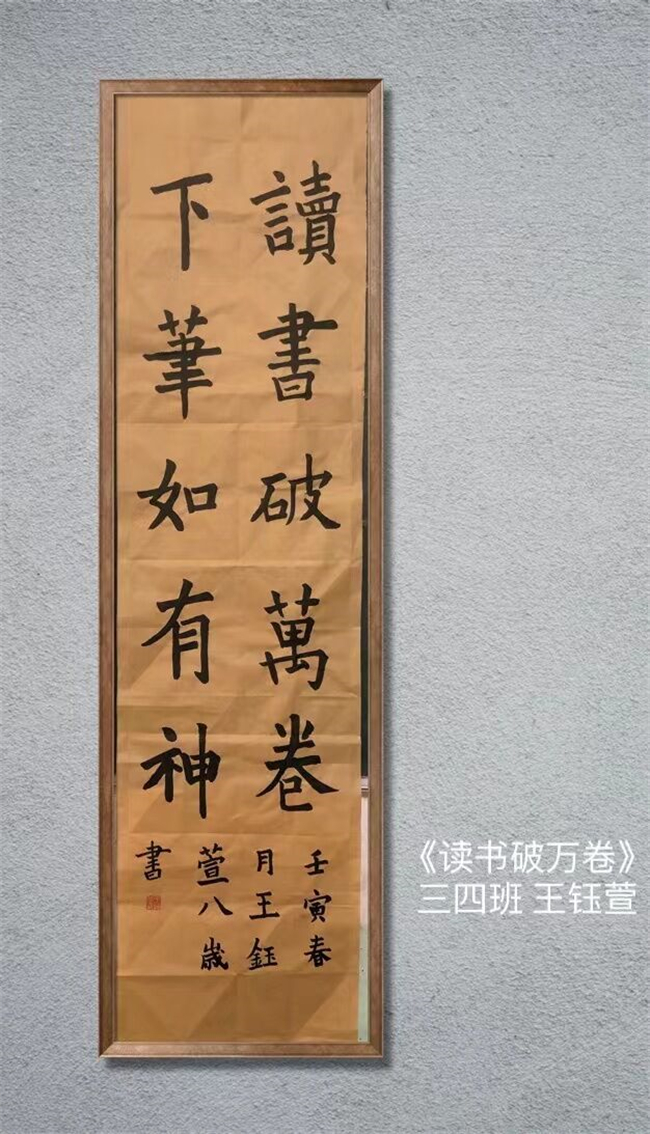 讀書破萬卷
下筆如有神
壬寅春
月王鈺
萱八歲
書
《读书破万卷》
三四班 王钰萱